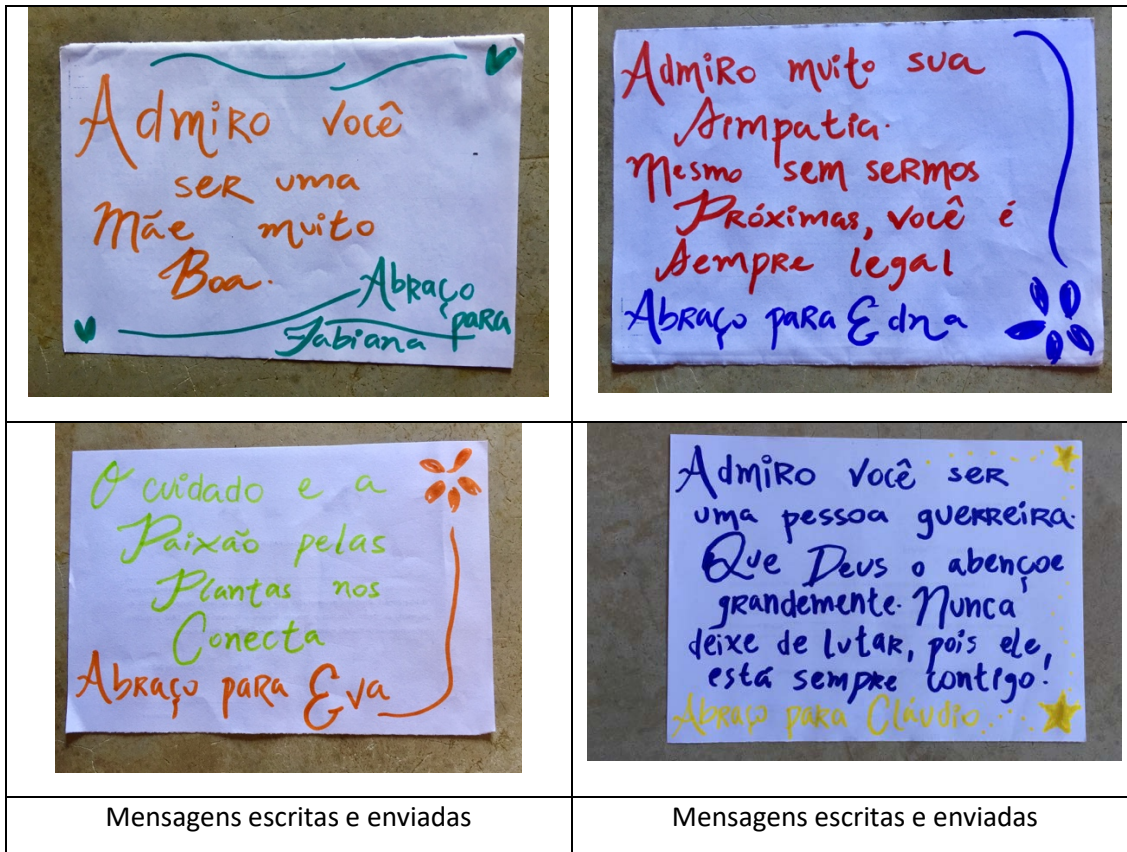 Admiro você
ser uma
Mãe muito
Boa.
Abraço
para
Fabiana
Admiro muito sua
simpatia.
Mesmo sem sermos
Próximas, você é
sempre legal
Abraço para Edna
O cuidado e a
Paixão pelas
Plantas nos
Conecta
Abraço para Eva
Admiro você ser
uma pessoa guerreira.
Que Deus o abençoe
grandemente. Nunca
deixe de lutar, pois ele,
está sempre contigo!
Abraço para Cláudio...
Mensagens escritas e enviadas
Mensagens escritas e enviadas